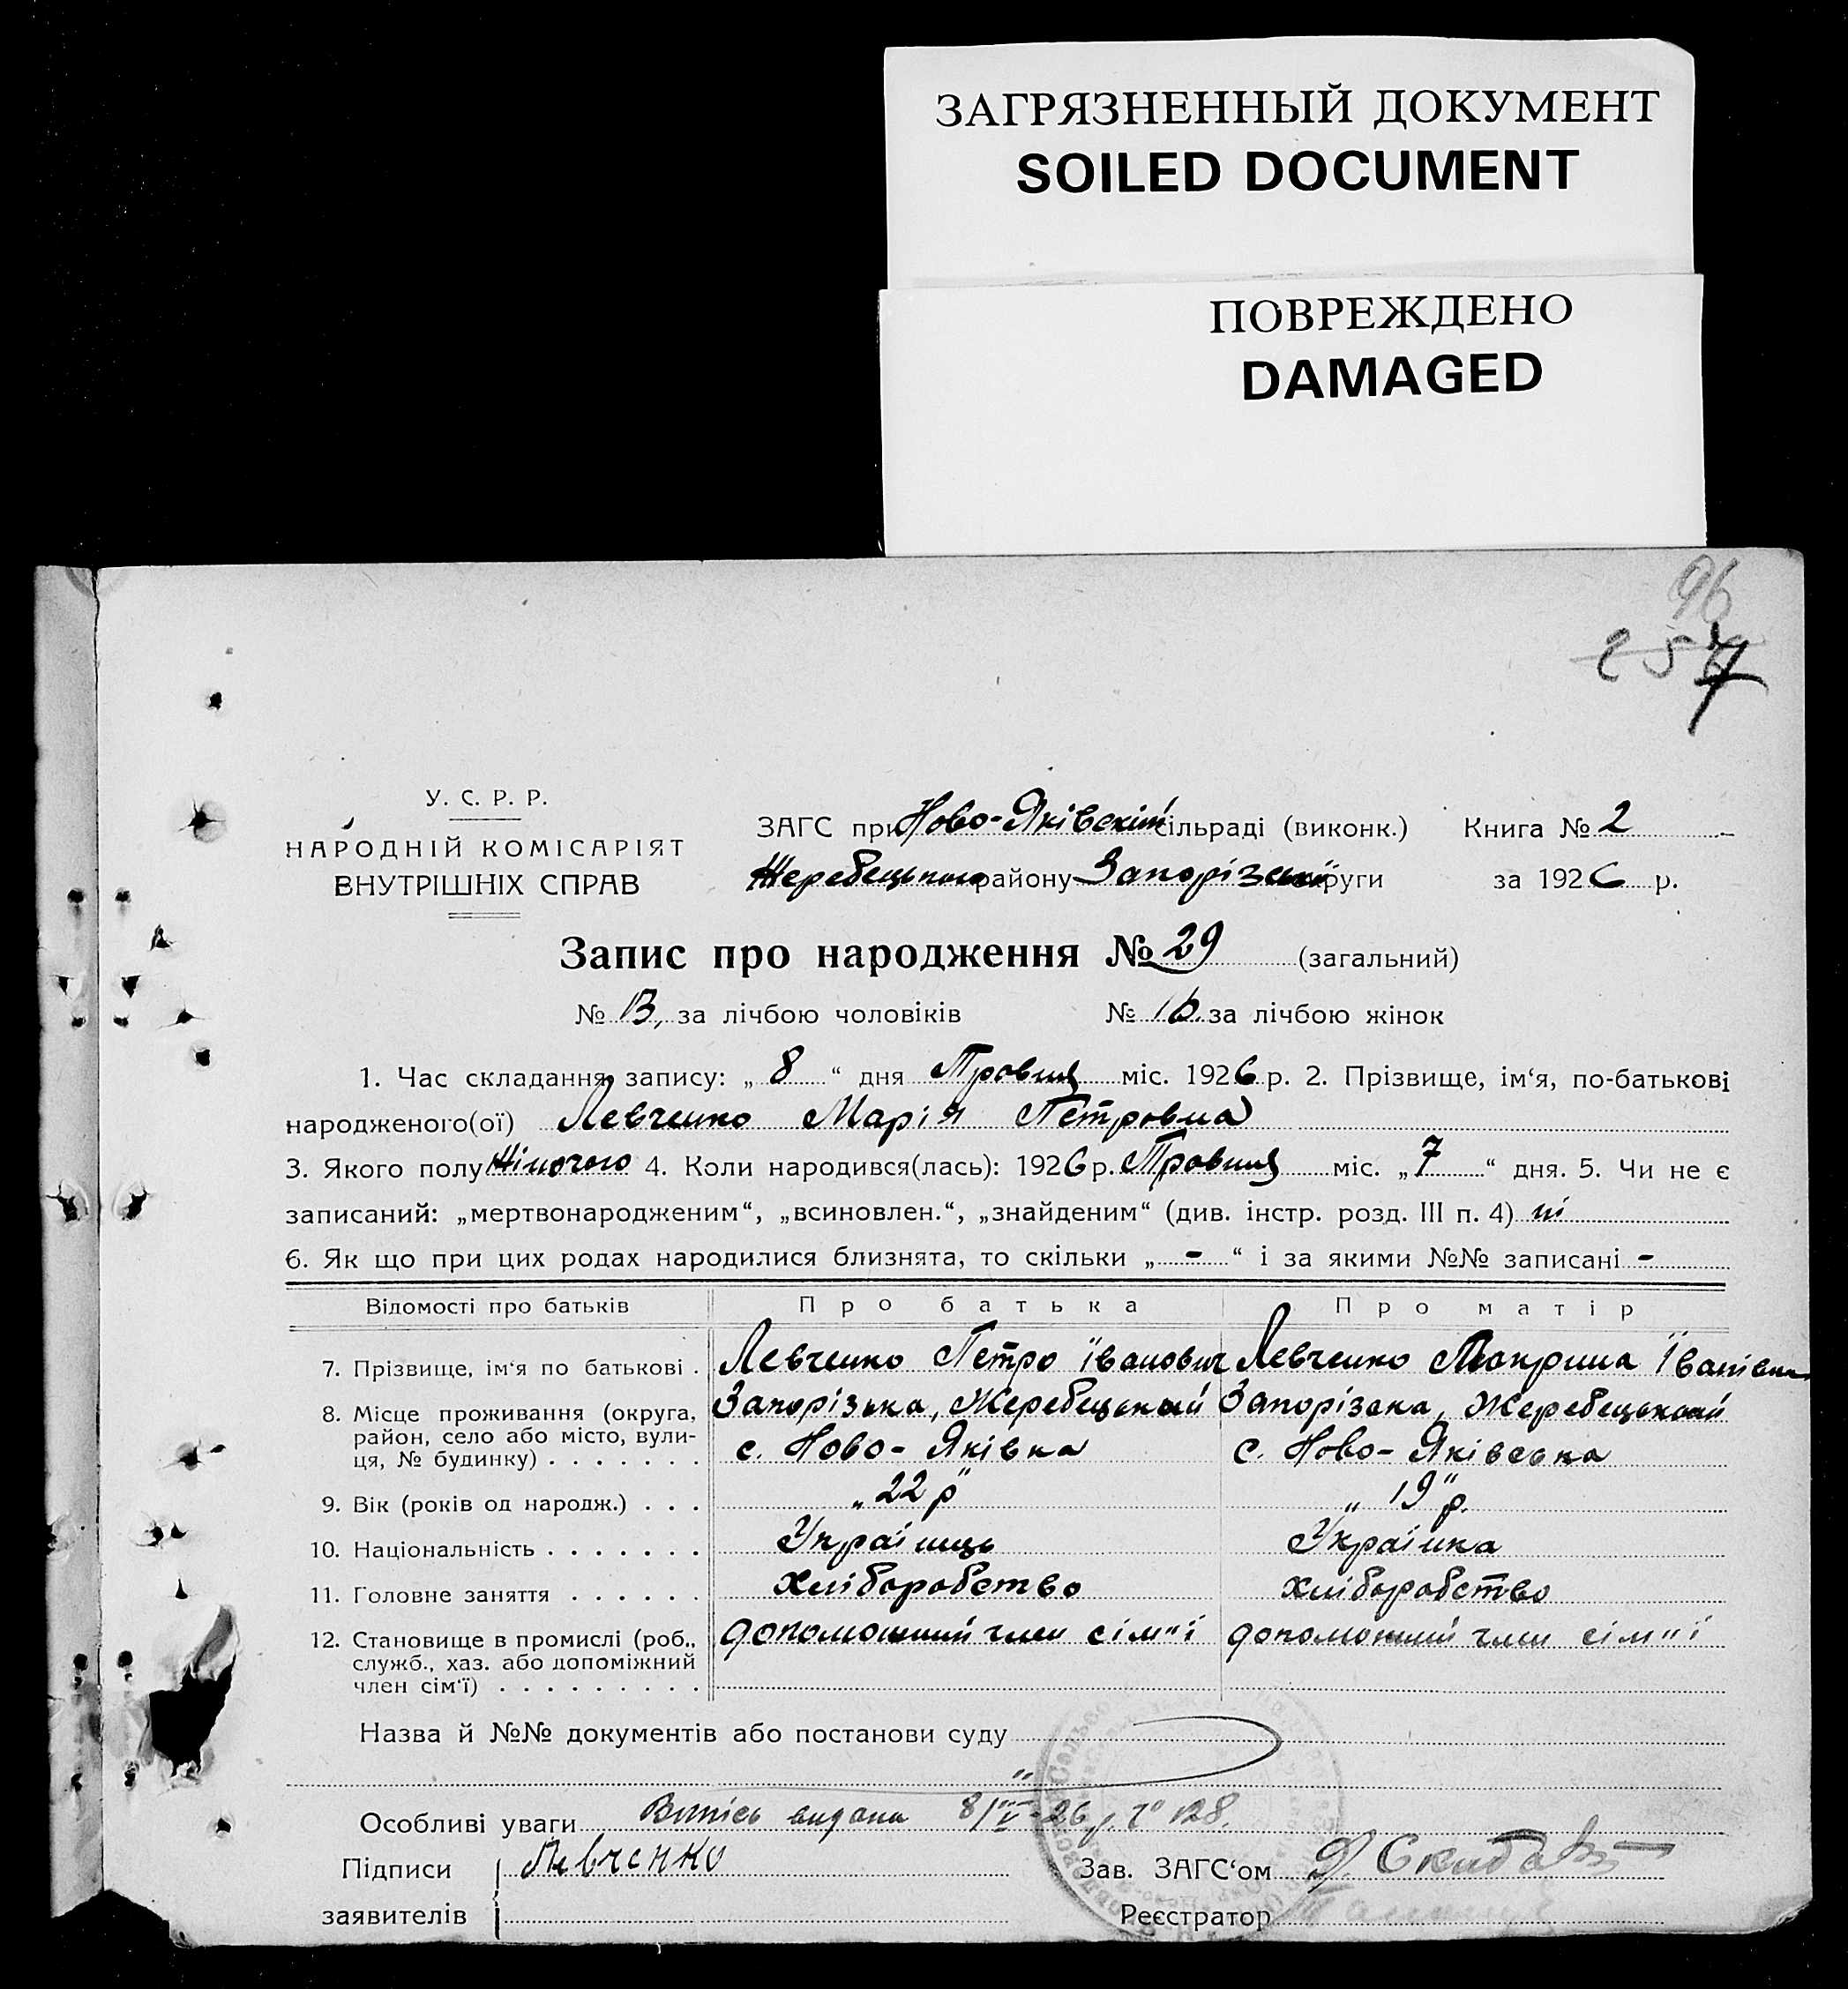 ЗАГРЯЗНЕННЫЙ ДОКУМЕНТ
SOILED DOCUMENT
ПОВРЕЖДЕНО
DAMAGED
96
257
У. С. Р. Р.
НАРОДНІЙ КОМІСАРІЯТ
ВНУТРІШНІХ СПРАВ
ЗАГС при Ново-Яківскій сільраді (виконк.) Книга № 2
Жеребецького району Запорізської округи за 1926 р.
Запис про народження № 29 (загальний)
№ 13, за лічбою чоловіків № 16. за лічбою жінок
1. Час складання запису: „ 8 “ дня Травня міс. 1926 р. 2. Прізвище, ім‘я, по-батькові
народженого(ої) Левченко Марія Петровна
3. Якого полу Жіночого 4. Коли народився(лась): 1926 р. Травня міс. „ 7 “ дня. 5. Чи не є
записаний: „мертвонародженим“, „всиновлен.“, „знайденим“ (див. інстр. розд. III п. 4) ні
6. Як що при цих родах народилися близнята, то скільки „ - “ і за якими №№ записані -
Відомості про батьків Про батька Про матір
7. Прізвище, ім‘я по батькові . Левченко Петро Їванович Левченко Мокрина Їванівна
8. Місце проживання (округа, Запорізька, Жеребецький Запорізька, Жеребецький
район, село або місто, вули-
ця, № будинку) . . . . . . . с. Ново- Яківка с. Ново- Яківська
9. Вік (років од народж.) . . . „ 22 р“ „ 19“ р.
10. Національність . . . . . . . Українць Українка
11. Головне заняття . . . . . . хліборобство хліборобство
12. Становище в промислі (роб., допоможний член сім"ї допоможний член сім"ї
служб., хаз. або допоміжний
член сім‘ї) . . . . . . . . .
Назва й №№ документів або постанови суду
"
Особливі уваги Випісь видана 8/V-26 р. 128.
Підписи Левченко Зав. ЗАГС‘ом
заявителів Реєстратор